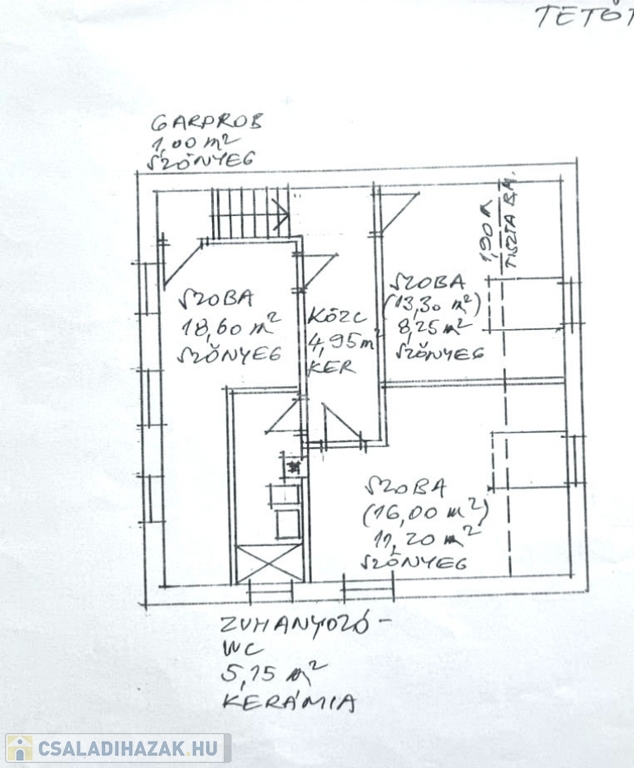 TETŐT
GARPROB
1,00 m²
SZŐNYEG
1,90 m
TISZTA B.M.
SZOBA
18,60 m²
SZŐNYEG
KÖZL
4,95 m²
KER
SZOBA
(13,30 m²)
8,25 m²
SZŐNYEG
SZOBA
(16,00 m²)
11,20 m²
SZŐNYEG
ZUHANYOZÓ-
WC
5,15 m²
KERÁMIA
CSALADIHAZAK.HU